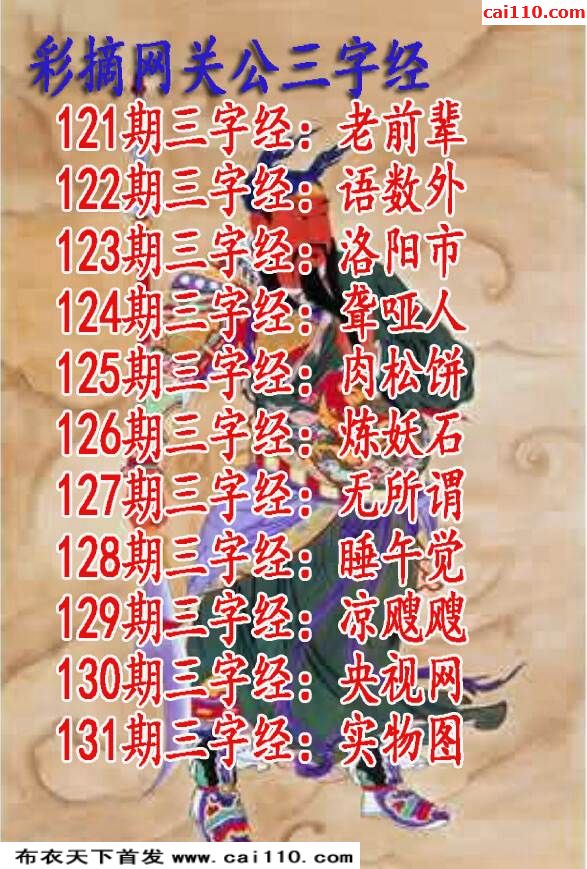 cai110.com
彩摘网关公三字经
121期三字经：老前辈
122期三字经：语数外
123期三字经：洛阳市
124期三字经：聋哑人
125期三字经：肉松饼
126期三字经：炼妖石
127期三字经：无所谓
128期三字经：睡午觉
129期三字经：凉飕飕
130期三字经：央视网
131期三字经：实物图
布衣天下首发 www.cai110.com